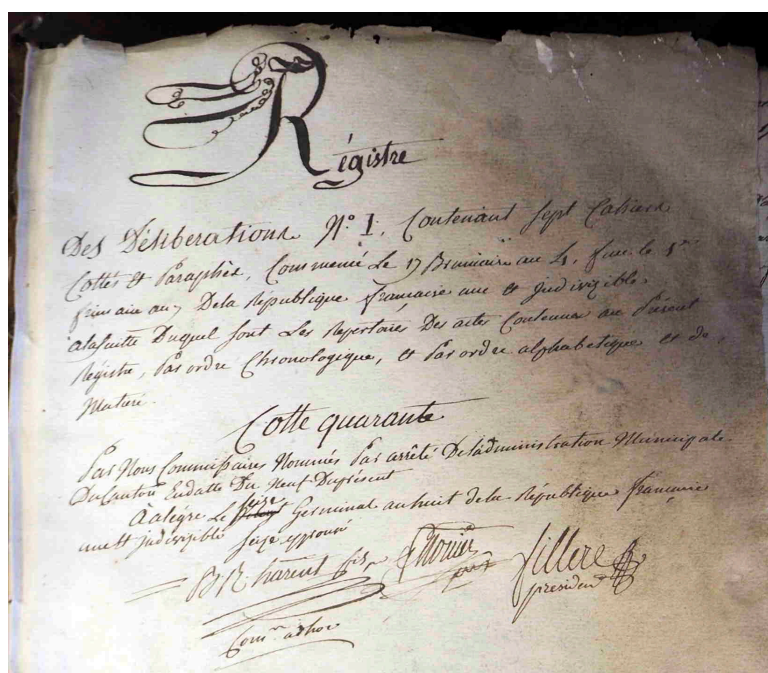 Régistre
Des Déliberations N° 1. Contenant Sept Cahiers
Cottés et Paraphés, Commencé Le 17 Brumaire an 4, fini le 1er
frimaire an 7 De la République francaise une et indivizible
alasuitte Duquel sont Les Repertoires Des actes Contenus au Présent
Régistre, Par ordre Chronologique, et Par ordre alphabetique et de
Matiere.
Cotte quarante
Par Nous Commissaires Nommés Par arrêté De Ladministration Municipale
Du Canton Endatte Du Neuf Duprésent
seize
Aalegre Le Germinal anhuit dela République francaise
une et indivizible seize approuvé
fils
fillere
président
Comre adhoc